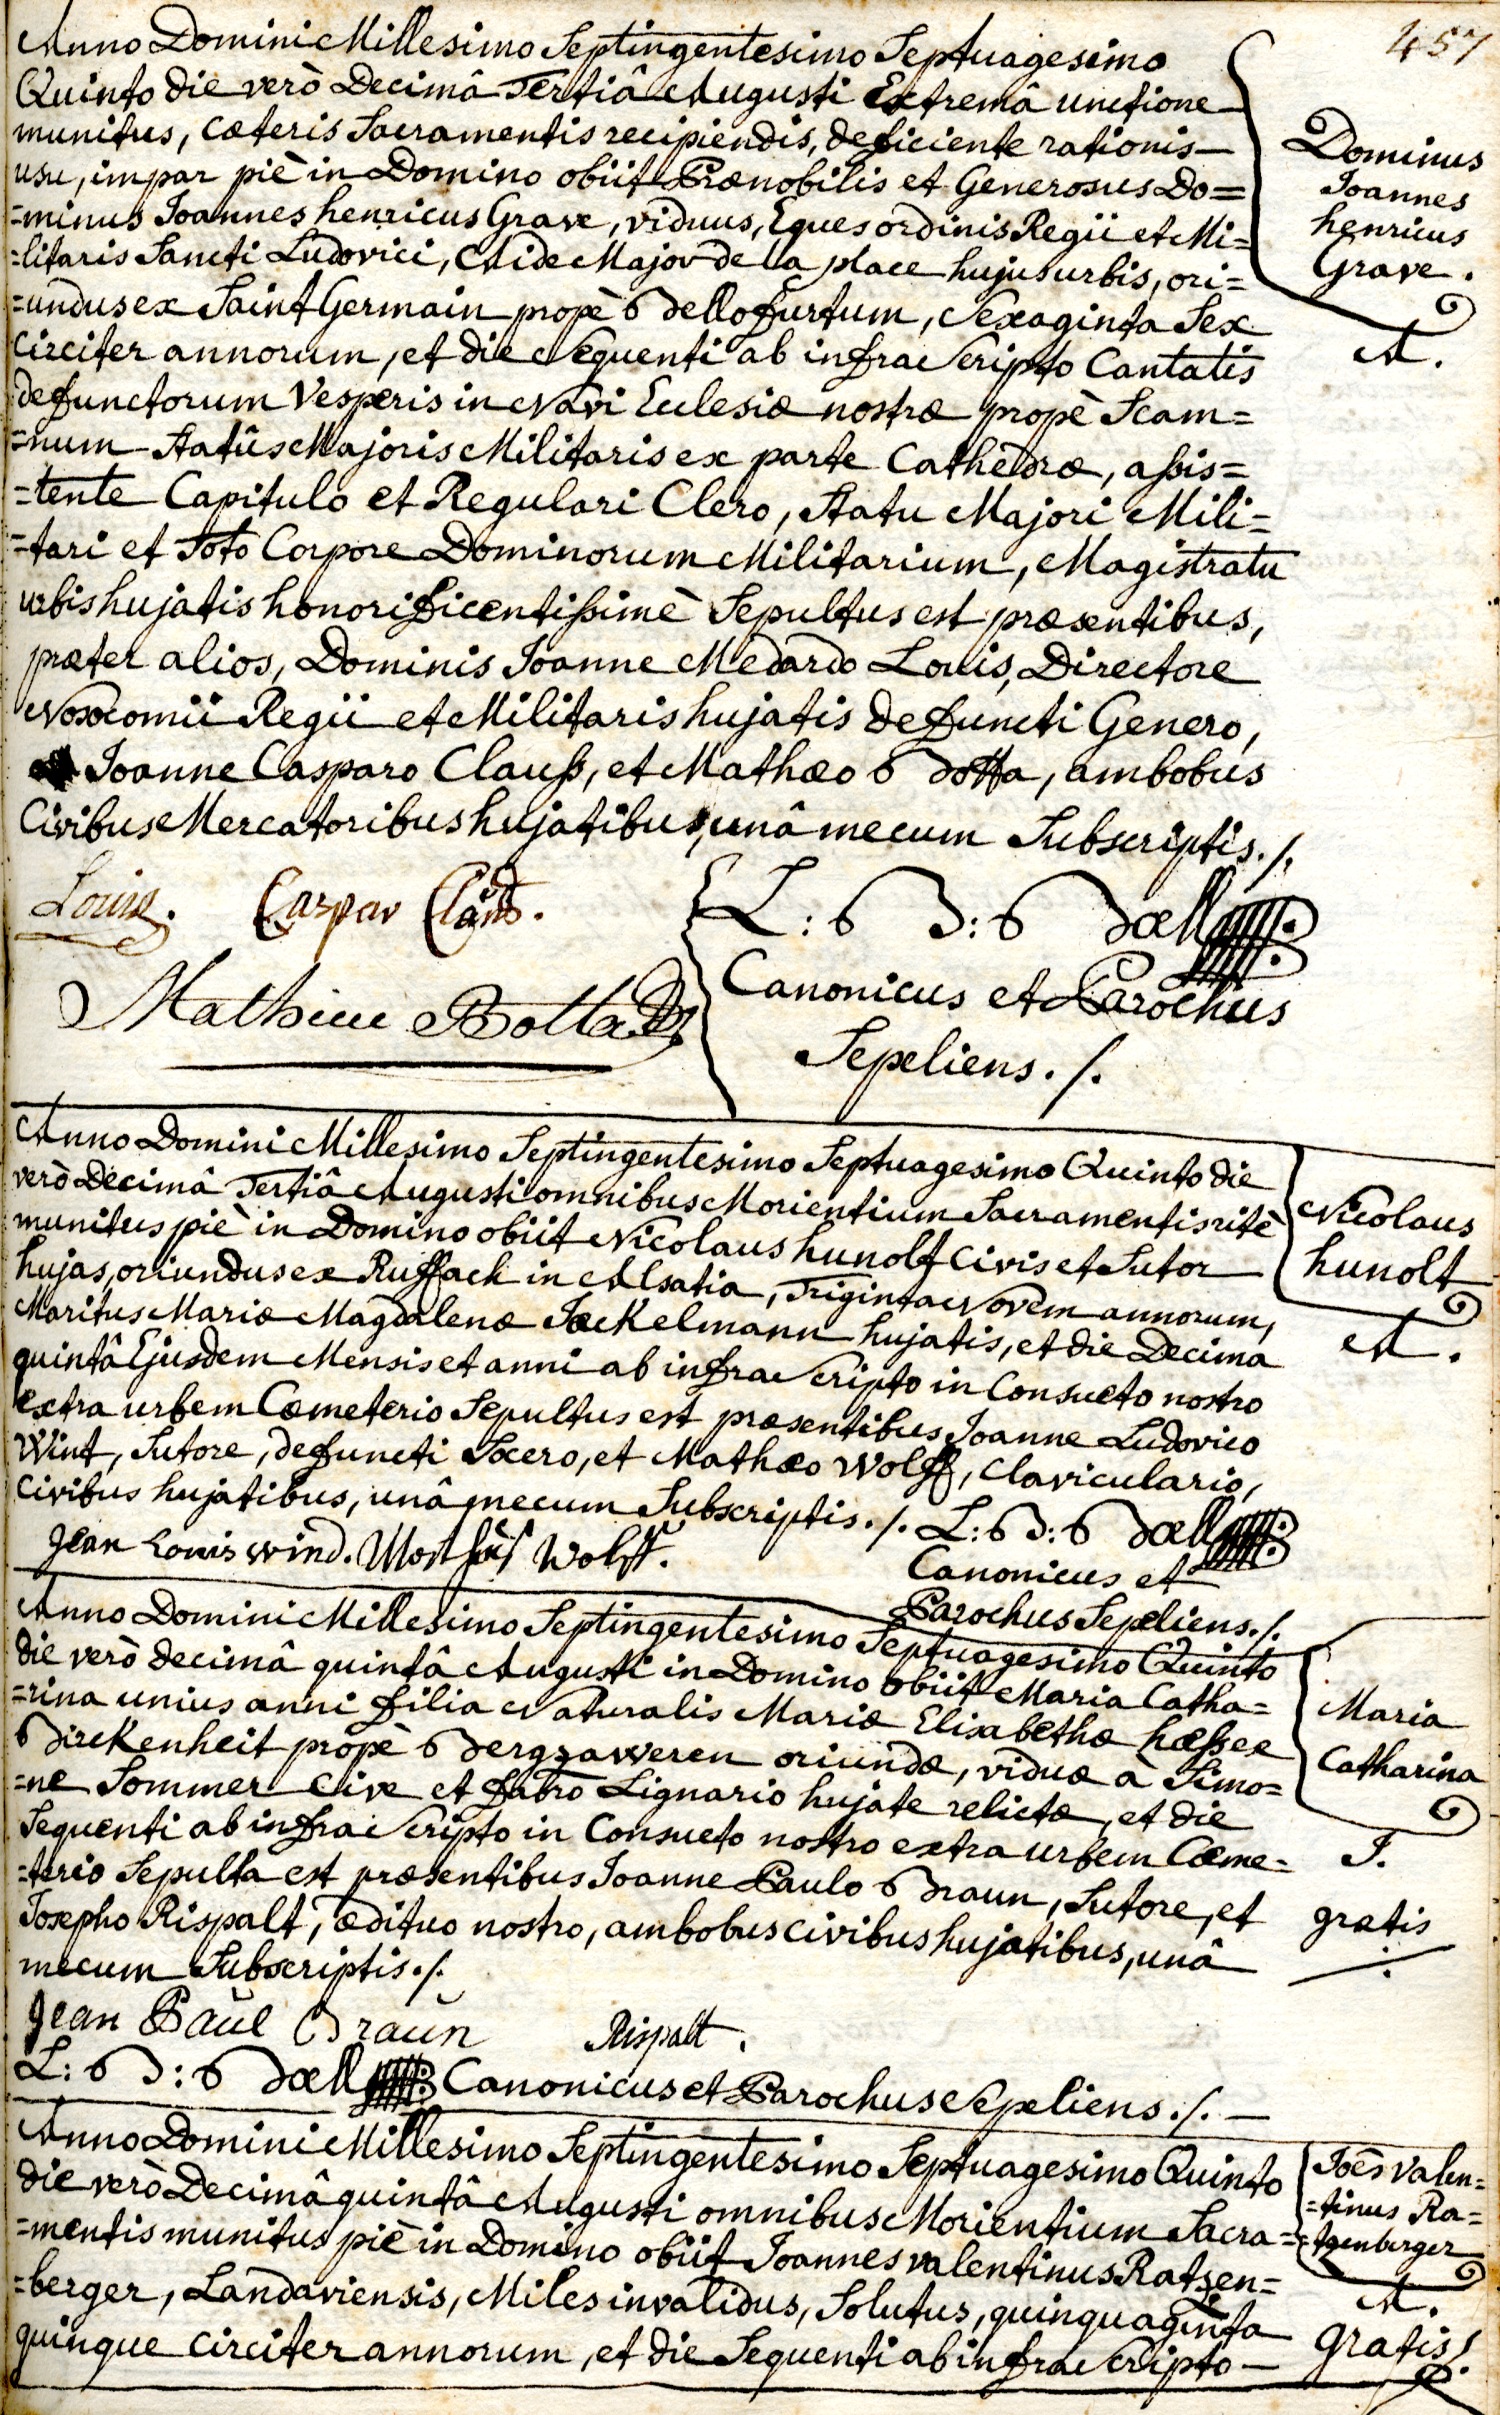 457
Anno Domini Millesimo Septingentesimo Septuagesimo
Quinto die verò Decimâ Tertiâ Augusti Extremâ unctione
munitus, cæteris Sacramentis recipiendis, deficiente rationis
usu, impar piè in Domino obiit Prænobilis et Generosus Do=
=minus Joannes henricus Grave, viduus, Eques ordinis Regii et Mi=
=litaris Sancti Ludovici, Aide Major de la place hujus urbis, ori=
=undus ex Saint Germain propè Bellofurtum, Sexaginta Sex
circiter annorum, et die Sequenti ab infra Scripto Cantatis
defunctorum Vesperis in Navi Eclesiæ nostræ propè Scam=
=num Statûs Majoris Militaris ex parte Cathedræ, assis=
=tente Capitulo et Regulari Clero, Statu Majori Mili=
=tari et Toto Corpore Dominorum Militarium, Magistratu
urbis hujatis honorificentissimè Sepultus est præsentibus,
præter alios, Dominis Joanne Medardo Louis, Directore
Nosocomii Regii et Militaris hujatis defuncti Genero,
Joanne Casparo Clauss, et Mathæo Botta, ambobus
Civibus Mercatoribus hujatibus, unâ mecum Subscriptis./.
Dominus
Joannes
henricus
Grave.
A.
Louis. Caspar Clauß.
Mathieu Botta
L: B: Bæll
Canonicus et Parochus
Sepeliens./.
Anno Domini Millesimo Septingentesimo Septuagesimo Quinto die
verò Decimâ Tertiâ Augusti omnibus Morientium Sacramentis ritè
munitus piè in Domino obiit Nicolaus hunolt Civis et Sutor
hujas, oriundus ex Ruffach in Alsatia, Triginta Novem annorum,
Maritus Mariæ Magdalenæ Jæckelmann hujatis, et die Decima
quintâ Ejusdem Mensis et anni ab infra Scripto in Consueto nostro
extra urbem Cœmeterio Sepultus est præsentibus Joanne Ludovico
Wint, Sutore, defuncti Socero, et Mathæo Wolff, Claviculario,
Civibus hujatibus, unâ mecum Subscriptis./. L: B: Bæll
Nicolaus
hunolt
A.
Jean Louis Wind. Mathis Wolff.
Canonicus et
Parochus Sepeliens./.
Anno Domini Millesimo Septingentesimo Septuagesimo Quinto
die verò decimâ quintâ Augusti in Domino obiit Maria Catha=
=rina unius anni filia Naturalis Mariæ Elisabethæ hæssee
Birckenheit propè Bergzaweren oriundæ, viduæ à Simo=
=ne Sommer Cive et fabro Lignario hujate relictæ, et die
Sequenti ab infra Scripto in Consueto nostro extra urbem Cœme=
=terio Sepulta est præsentibus Joanne Paulo Braun, Sutore, et
Josepho Rispalt, ædituo nostro, ambobus civibus hujatibus, unâ
mecum Subscriptis./.
Maria
Catharina
J.
gratis
Jean Paul Braun Rispalt.
L: B: Bæll Canonicus et Parochus Sepeliens./.
Anno Domini Millesimo Septingentesimo Septuagesimo Quinto
die verò Decimâ quintâ Augusti omnibus Morientium Sacra=
=mentis munitus piè in Domino obiit Joannes valentinus Ratzen=
=berger, Landaviensis, Miles invalidus, Solutus, quinquaginta
quinque circiter annorum, et die Sequenti ab infra Scripto
Joês valen=
=tinus Ra=
=tzenberger
A.
gratis